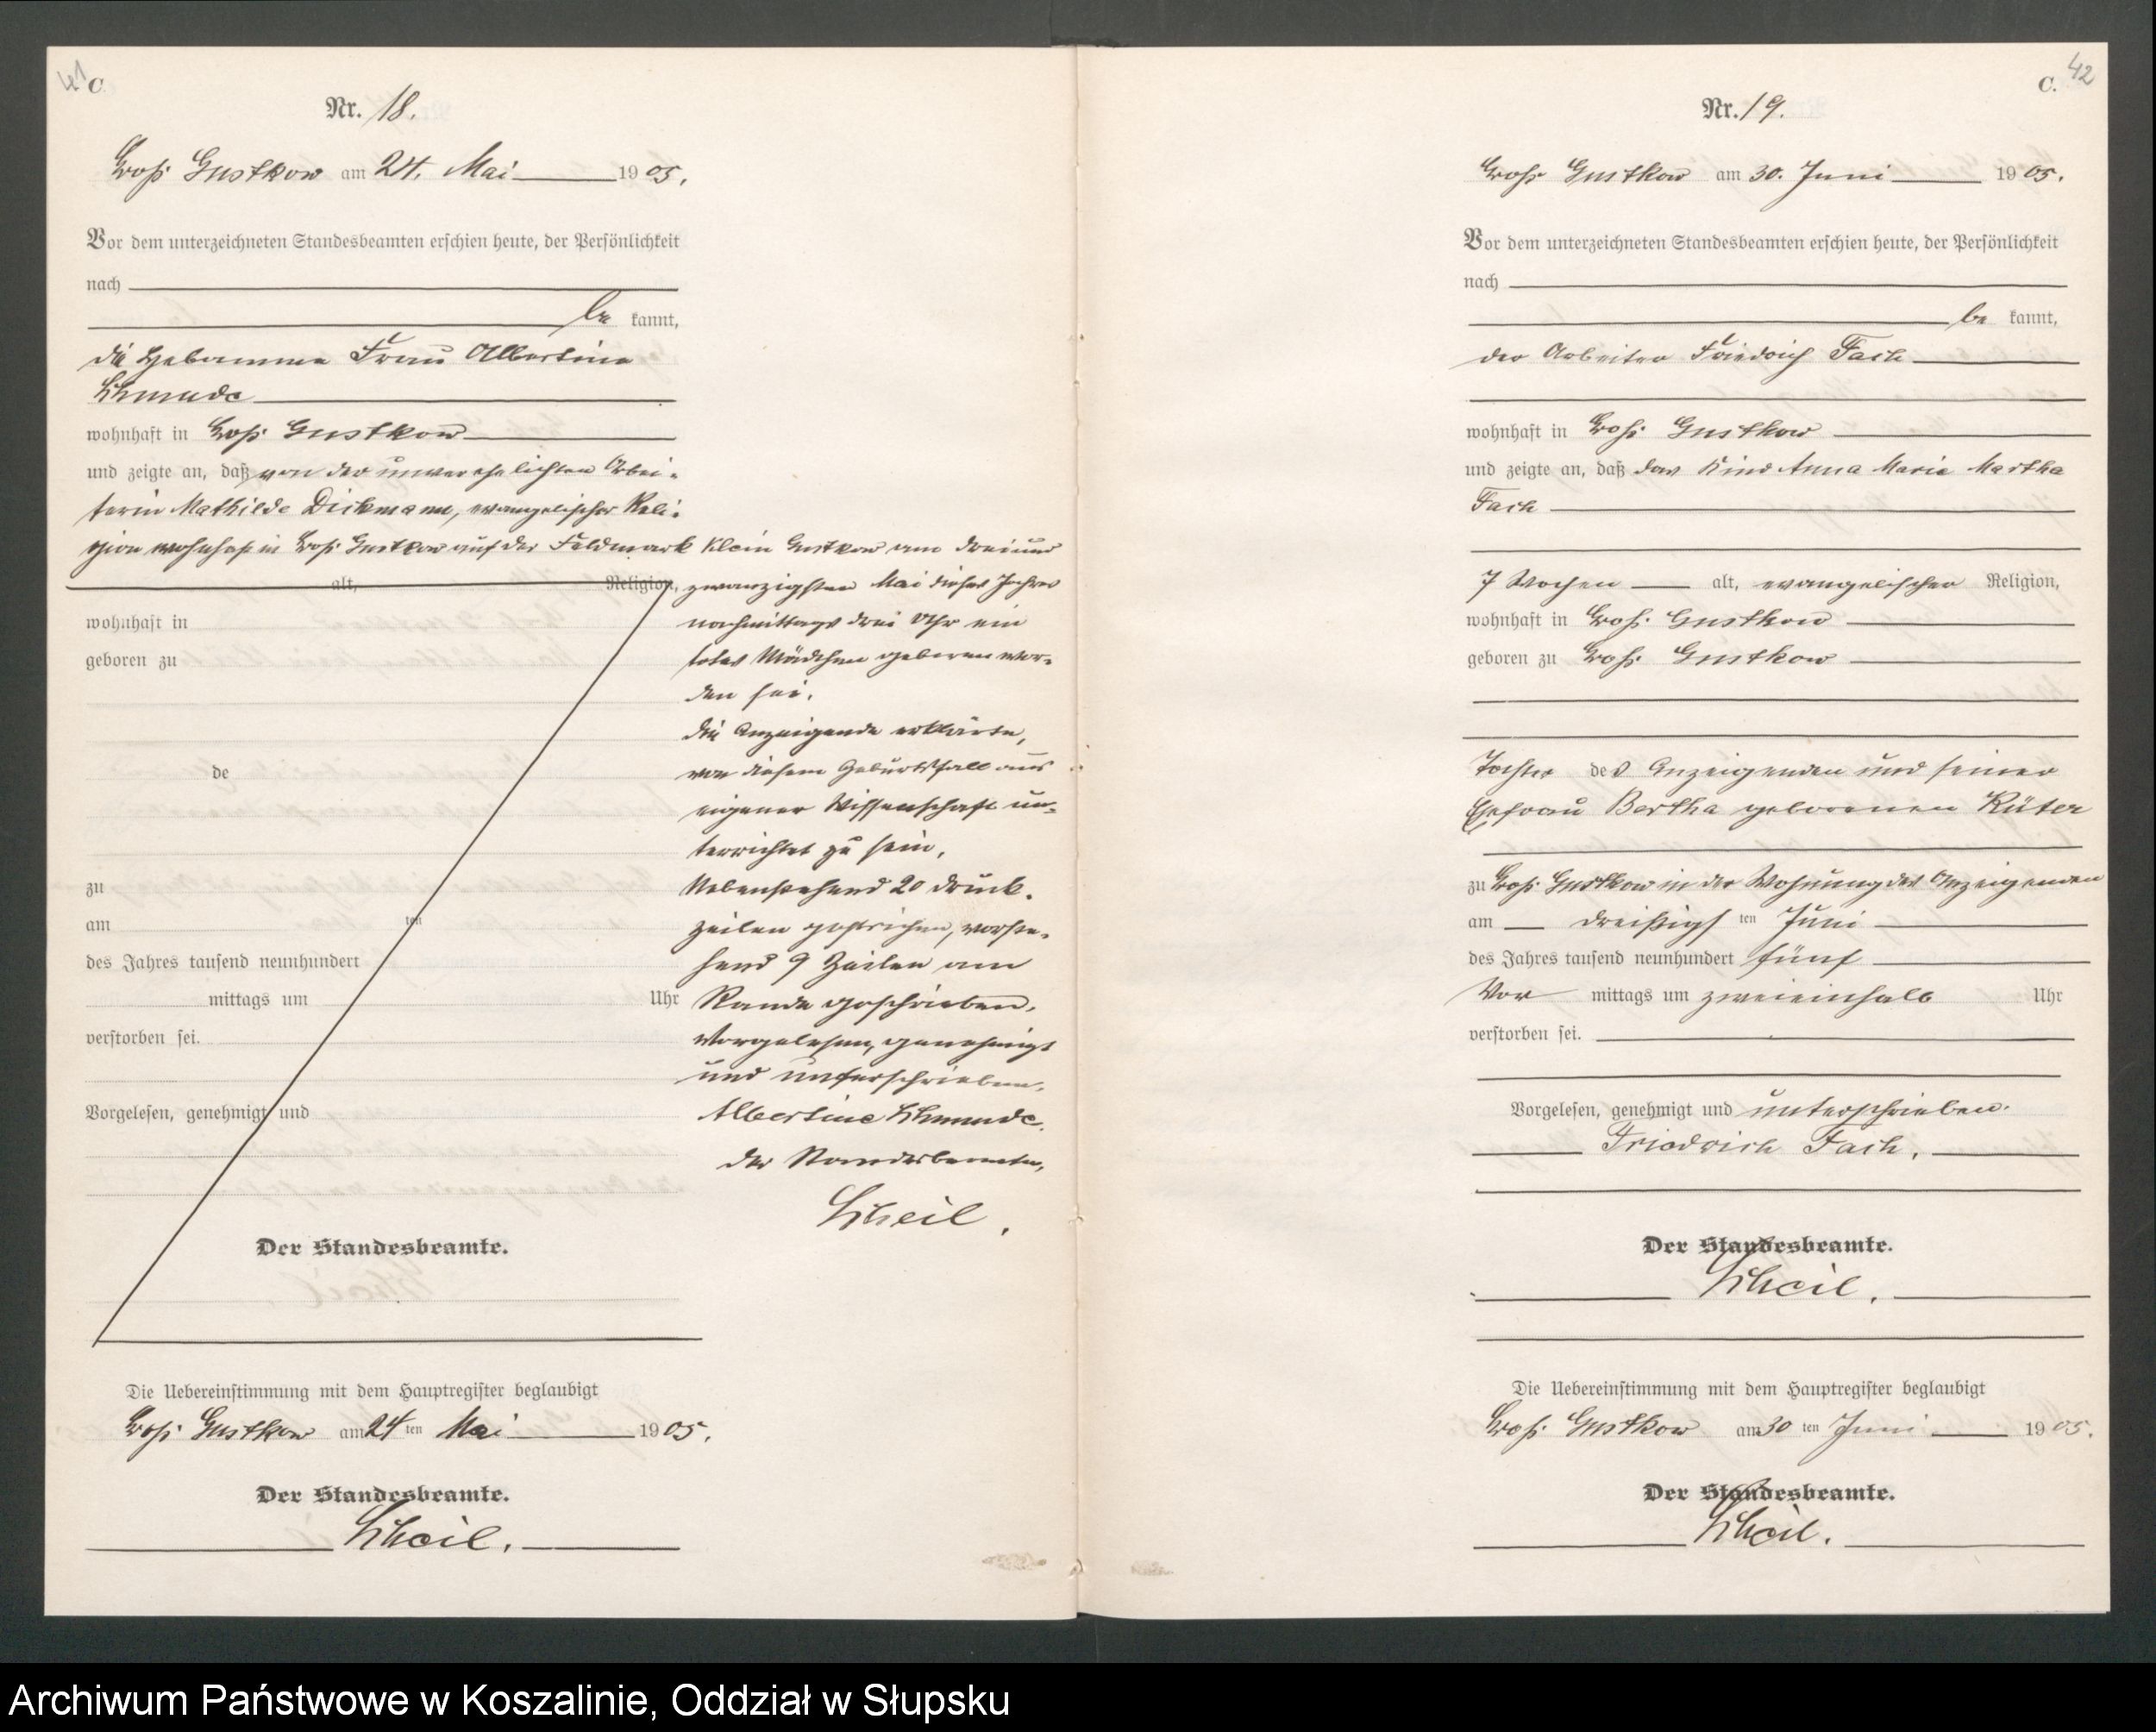 41 C
Nr. 18.
Groß Gustkow am 24. Mai 1905.
Vor dem unterzeichneten Standesbeamten erschien heute, der Persönlichkeit
nach
be kannt,
die Hebamme Frau Albertine
wohnhaft in Groß Gustkow
und zeigte an, daß von der unverehelichten Arbei-
terin Mathilde Dickmann, evangelischer Reli-
gion wohnhaft in Groß Gustkow auf der Feldmark Klein Gustkow am dreiund
alt, Religion, zwanzigsten Mai dieses Jahres
wohnhaft in nachmittags drei Uhr ein
geboren zu totes Mädchen geboren wor-
den sei.
die Anzeigende erklärte,
de von diesem Geburtsfall aus
eigener Wissenschaft un-
terrichtet zu sein.
zu Nebenstehend 20 Druck-
am ten zeilen gestrichen, vorste-
des Jahres tausend neunhundert hend 9 Zeilen am
mittags um Uhr Rande geschrieben.
verstorben sei. Vorgelesen, genehmigt
und unterschrieben.
Vorgelesen, genehmigt und Albertine
der Standesbeamte,
Scheil.
Der Standesbeamte.
Die Uebereinstimmung mit dem Hauptregister beglaubigt
Groß Gustkow am 24 ten Mai 1905.
Der Standesbeamte.
Scheil.
C. 42
Nr. 19.
Groß Gustkow am 30. Juni 1905.
Vor dem unterzeichneten Standesbeamten erschien heute, der Persönlichkeit
nach
be kannt,
der Arbeiter Friedrich Fach
wohnhaft in Groß Gustkow
und zeigte an, daß das Kind Anna Marie Martha
Fach
7 Wochen alt, evangelischer Religion,
wohnhaft in Groß Gustkow
geboren zu Groß Gustkow
Tochter des Anzeigenden und seiner
Ehefrau Bertha geborenen Rüter
zu Groß Gustkow in der Wohnung des Anzeigenden
am dreißigs ten Juni
des Jahres tausend neunhundert fünf
Vor mittags um zweieinhalb Uhr
verstorben sei.
Vorgelesen, genehmigt und unterschrieben.
Friedrich Fach.
Der Standesbeamte.
Scheil.
Die Uebereinstimmung mit dem Hauptregister beglaubigt
Groß Gustkow am 30 ten Juni 1905.
Der Standesbeamte.
Scheil.
Archiwum Państwowe w Koszalinie, Oddział w Słupsku